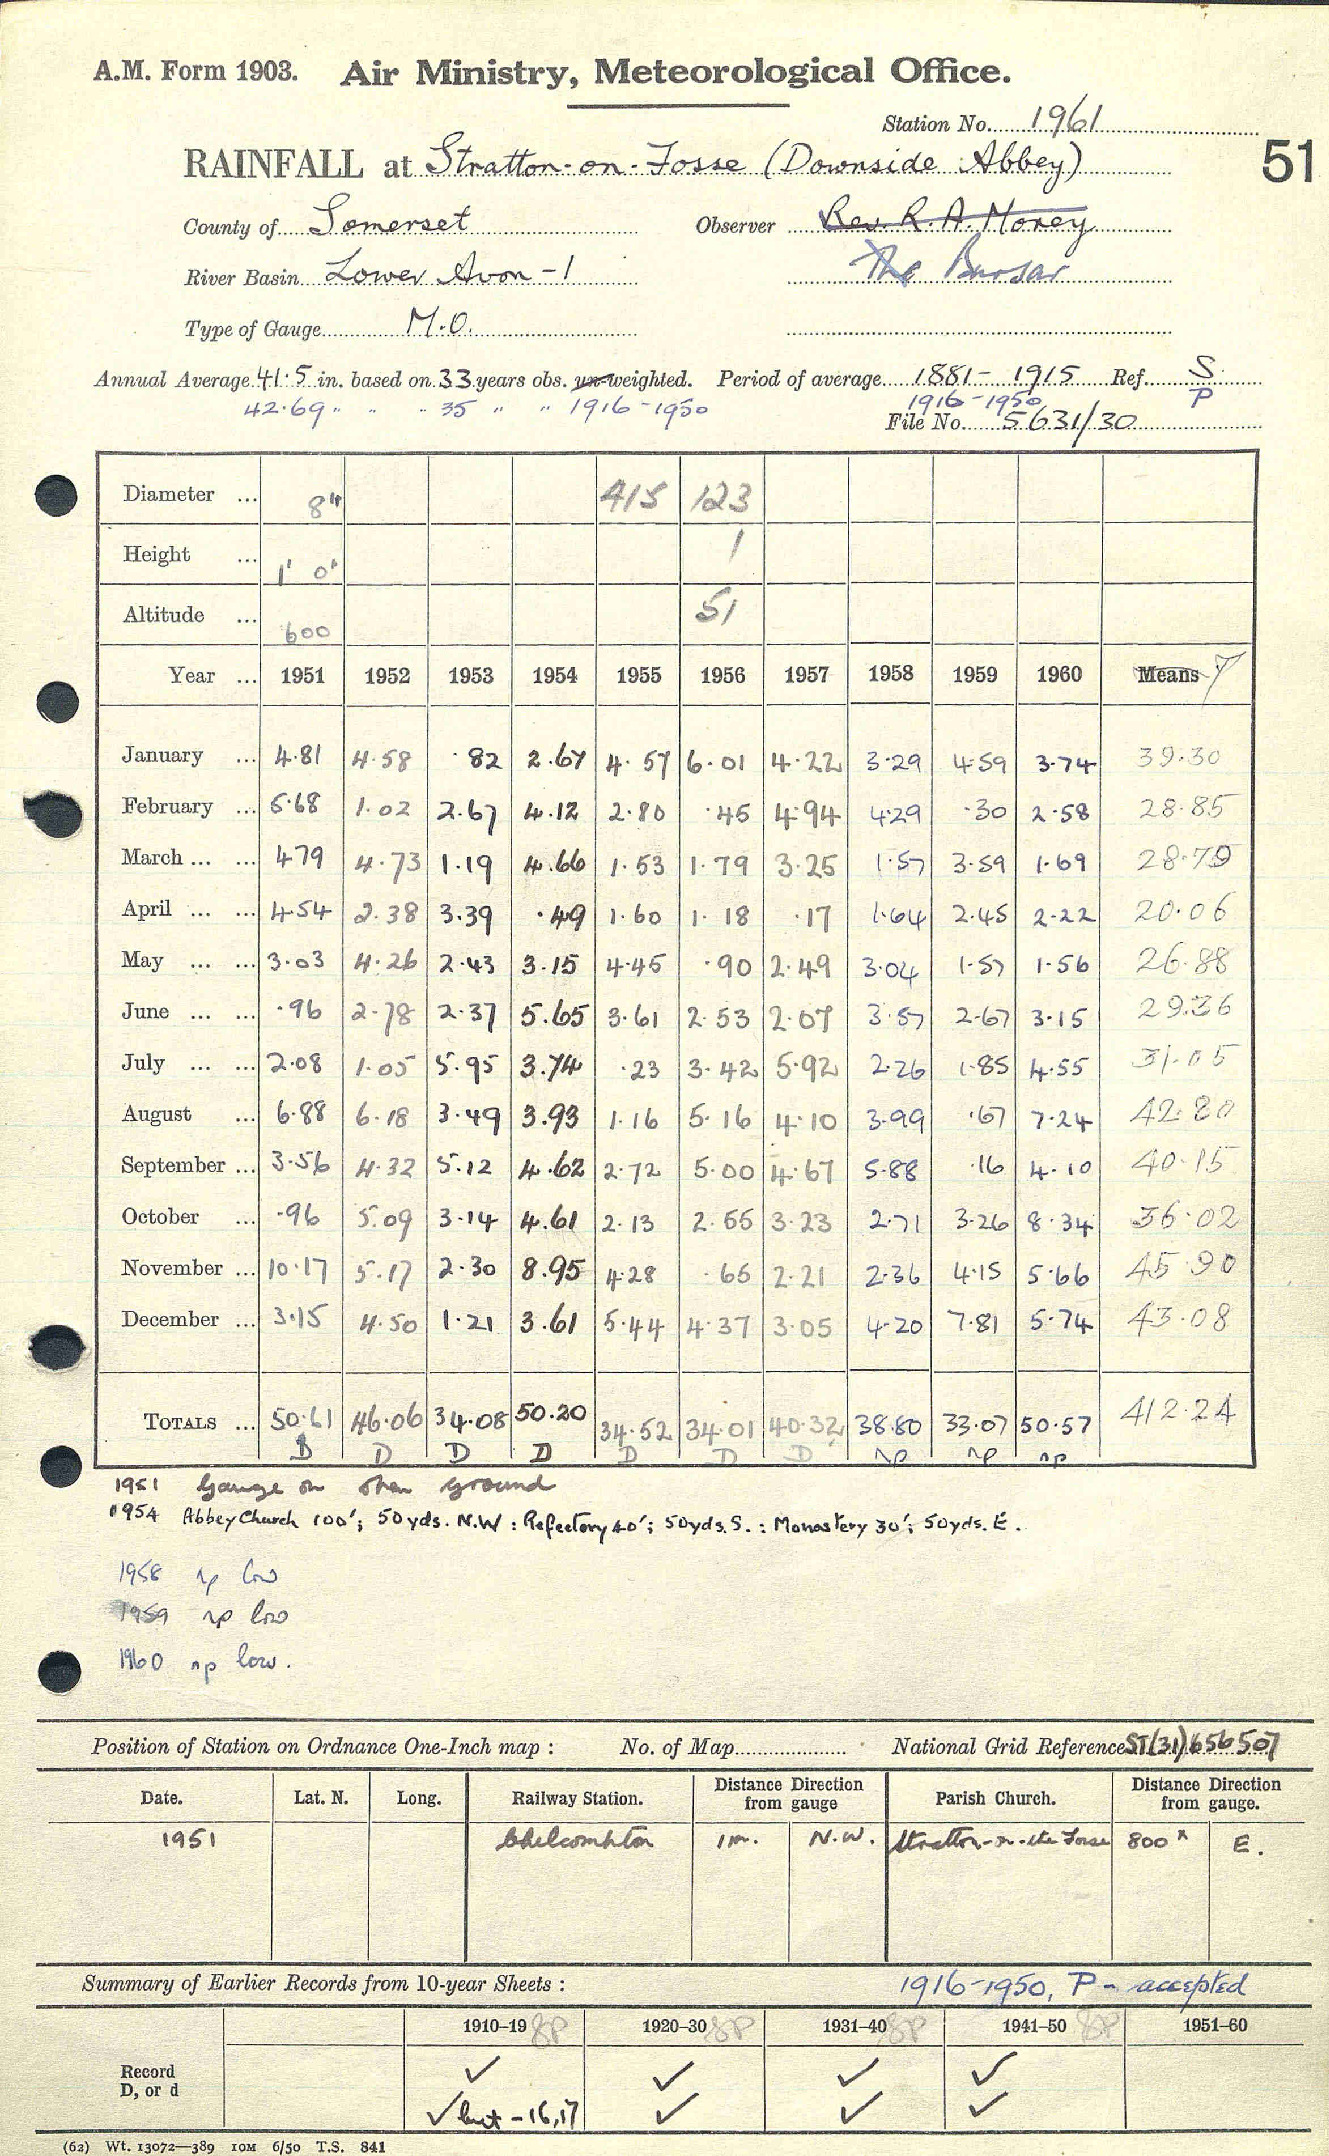 A.M. Form 1903. Air Ministry, Meteorological Office.
Station No. 1961
RAINFALL at Stratton-on-Fosse (Downside Abbey) 51
County of Somerset Observer Rev. R. A. Morey
River Basin Lower Avon - 1 The Bursar
Type of Gauge M.O.
Annual Average 41.5 in. based on 33 years obs. un-weighted. Period of average 1881 - 1915 Ref. S
42.69 " " " 35 " " 1916-1950 1916-1950 P
File No. 5631/30
Diameter ... 8" 415 123
Height ... 1' 0" 1
Altitude ... 600 51
Year ... 1951 1952 1953 1954 1955 1956 1957 1958 1959 1960 Means
January ... 4.81 4.58 .82 2.67 4.57 6.01 4.22 3.29 4.59 3.74 39.30
February ... 5.68 1.02 2.67 4.12 2.80 .45 4.94 4.29 .30 2.58 28.85
March ... ... 4.79 4.73 1.19 4.66 1.53 1.79 3.25 1.57 3.59 1.69 28.79
April ... ... 4.54 2.38 3.39 .49 1.60 1.18 .17 1.64 2.45 2.22 20.06
May ... ... 3.03 4.26 2.43 3.15 4.45 .90 2.49 3.04 1.57 1.56 26.88
June ... ... .96 2.78 2.37 5.65 3.61 2.53 2.07 3.57 2.67 3.15 29.36
July ... ... 2.08 1.05 5.95 3.74 .23 3.42 5.92 2.26 1.85 4.55 31.05
August ... 6.88 6.18 3.49 3.93 1.16 5.16 4.10 3.99 .67 7.24 42.80
September ... 3.56 4.32 5.12 4.62 2.72 5.00 4.67 5.88 .16 4.10 40.15
October ... .96 5.09 3.14 4.61 2.13 2.55 3.23 2.71 3.26 8.34 36.02
November ... 10.17 5.17 2.30 8.95 4.28 .65 2.21 2.36 4.15 5.66 45.90
December ... 3.15 4.50 1.21 3.61 5.44 4.37 3.05 4.20 7.81 5.74 43.08
TOTALS ... 50.61 46.06 34.08 50.20 34.52 34.01 40.32 38.80 33.07 50.57 412.24
D D D D D D D np np np
1951 Gauge on open ground
1954 Abbey Church 100'; 50yds. N.W : Refectory 40'; 50yds. S. : Monastery 30'; 50yds. E.
1958 np low
1959 np low
1960 np low.
Position of Station on Ordnance One-Inch map : No. of Map National Grid Reference ST(31)656507
Date. Lat. N. Long. Railway Station. Distance Direction from gauge Parish Church. Distance Direction from gauge.
1951 Chilcompton 1m. N.W. Stratton-on-the Fosse 800x E.
Summary of Earlier Records from 10-year Sheets : 1916-1950, P - accepted
1910–19 8P 1920–30 8P 1931–40 8P 1941–50 8P 1951–60
Record ✓ ✓ ✓ ✓
D, or d ✓ but - 16, 17 ✓ ✓ ✓
(62) Wt. 13072—389 10M 6/50 T.S. 841